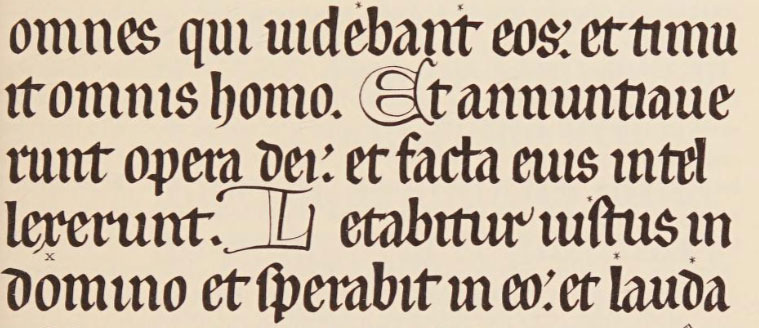 omnes qui uidebant eos: et timu
it omnis homo. Et annuntiaue
runt opera dei: et facta euis intel
lexerunt. L etabitur iustus in
domino et sperabit in eo: et lauda